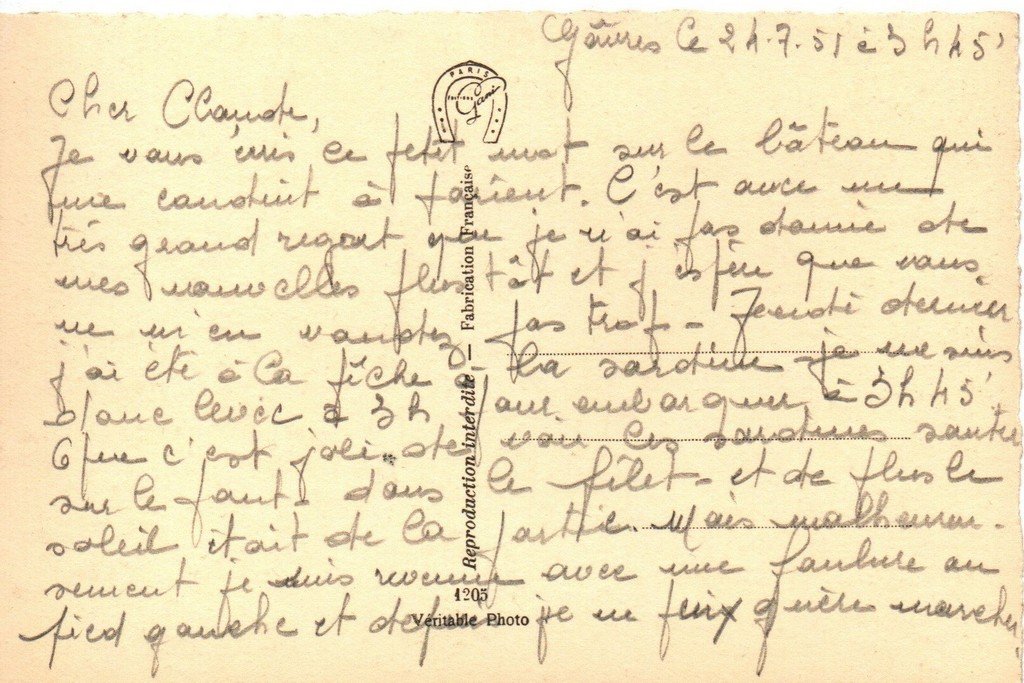 Gâvres le 24.7.51 à 3 h 45'
PARIS
EDITIONS
Gani
Cher Claude,
Je vous écris ce petit mot sur le bâteau qui
me conduit à Lorient. C'est avec un
très grand regret que je n'ai pas donné de
mes nouvelles plus tôt et j'espère que vous
ne m'en voudrez pas trop - Jeudi dernier
j'ai été à la pêche à la sardine je me suis
donc levée à 3h pour embarquer à 3 h 45'.
Que c'est joli de voir les sardines sauter
sur le pont - dans le filet - et de plus le
soleil était de la partie. Mais malheureu-
sement je suis revenue avec une foulure au
pied gauche et depuis je ne puis guère marcher
Reproduction interdite — Fabrication Française
1205
Véritable Photo